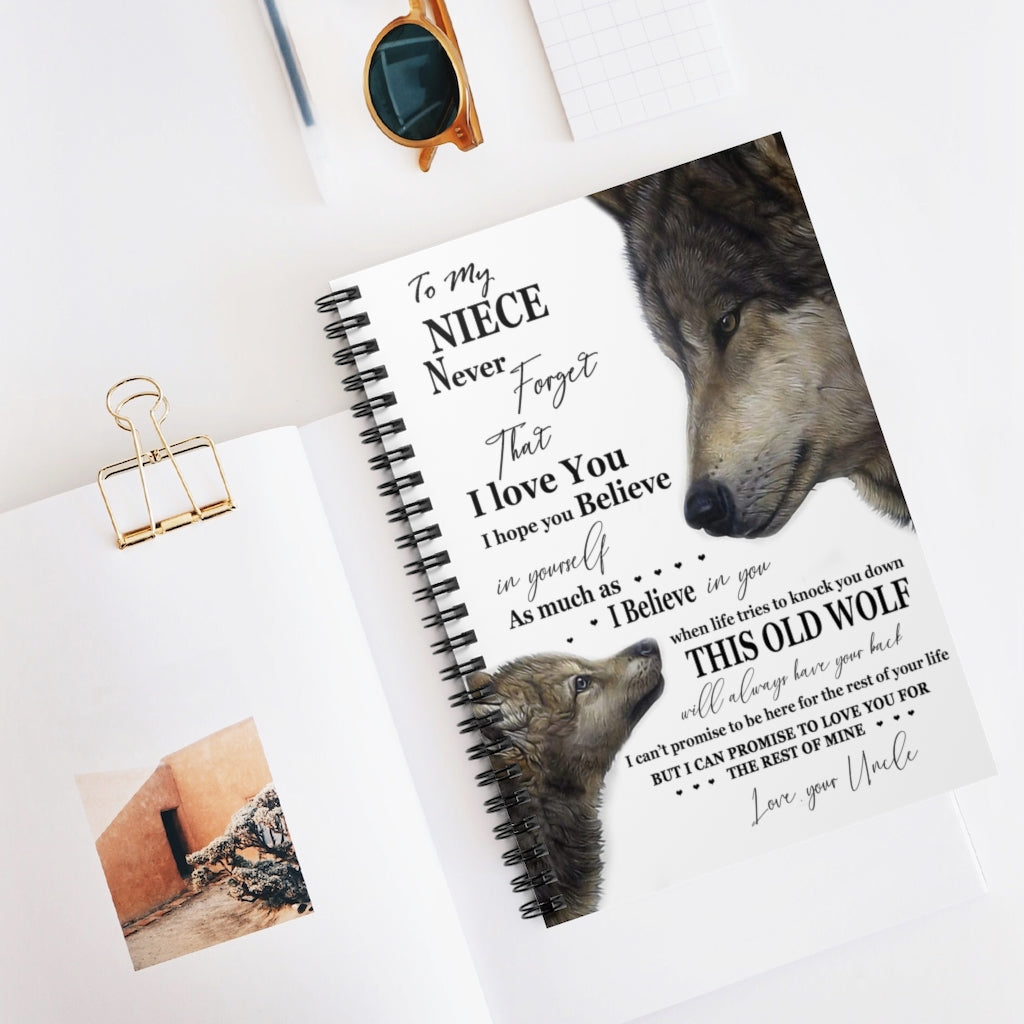 To My
NIECE
Never Forget
That
I love You
I hope you Believe
in yourself
As much as
I Believe in you
when life tries to knock you down
THIS OLD WOLF
will always have your back
I can't promise to be here for the rest of your life
BUT I CAN PROMISE TO LOVE YOU FOR
THE REST OF MINE
Love, your Uncle